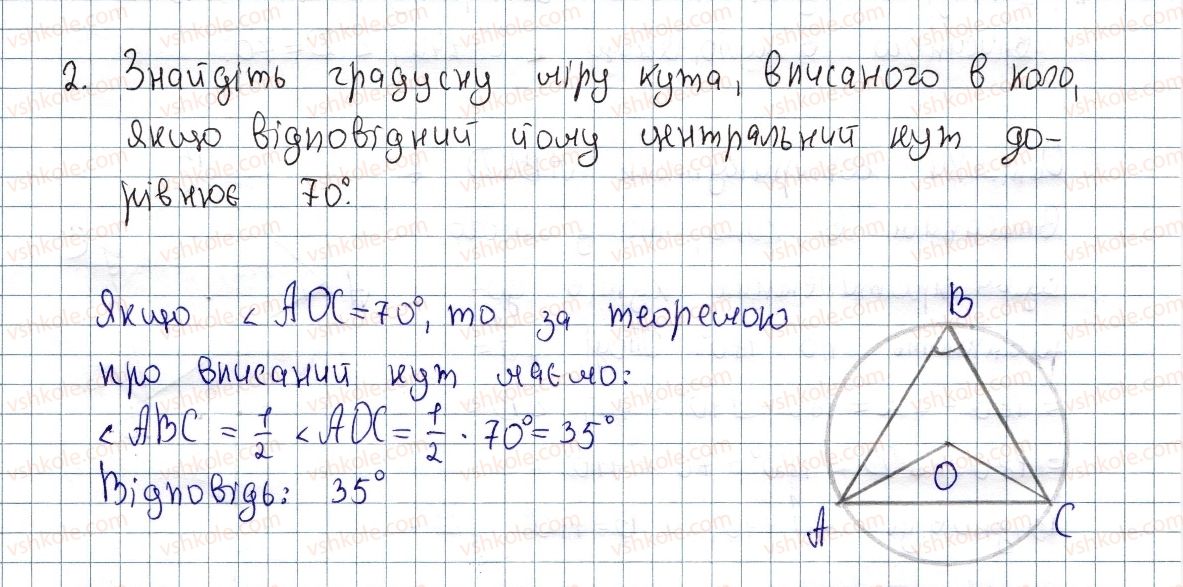 2. Знайдіть градусну міру кута, вписаного в коло,
якщо відповідний йому центральний кут до-
рівнює 70°.
Якщо ∠AOC = 70°, то за теоремою
про вписаний кут маємо:
∠ABC = 1/2 ∠AOC = 1/2 · 70° = 35°
Відповідь: 35°
B
O
A
C
vshkole.com